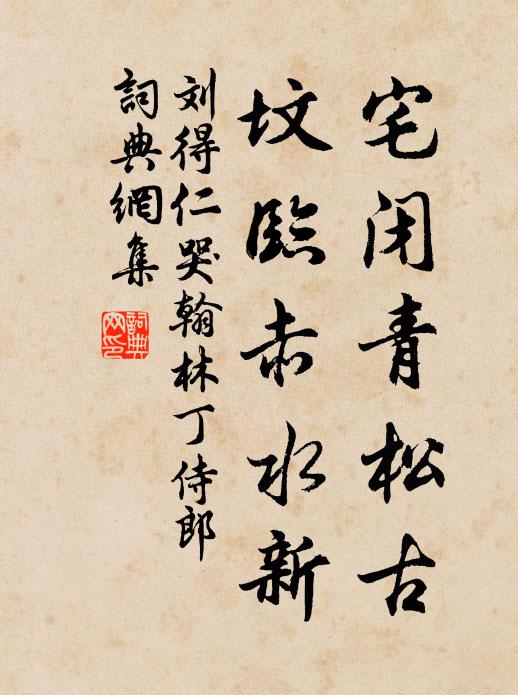 宅闭青松古
坟临赤水新
刘得仁哭翰林丁侍郎
詞典網集
詞典